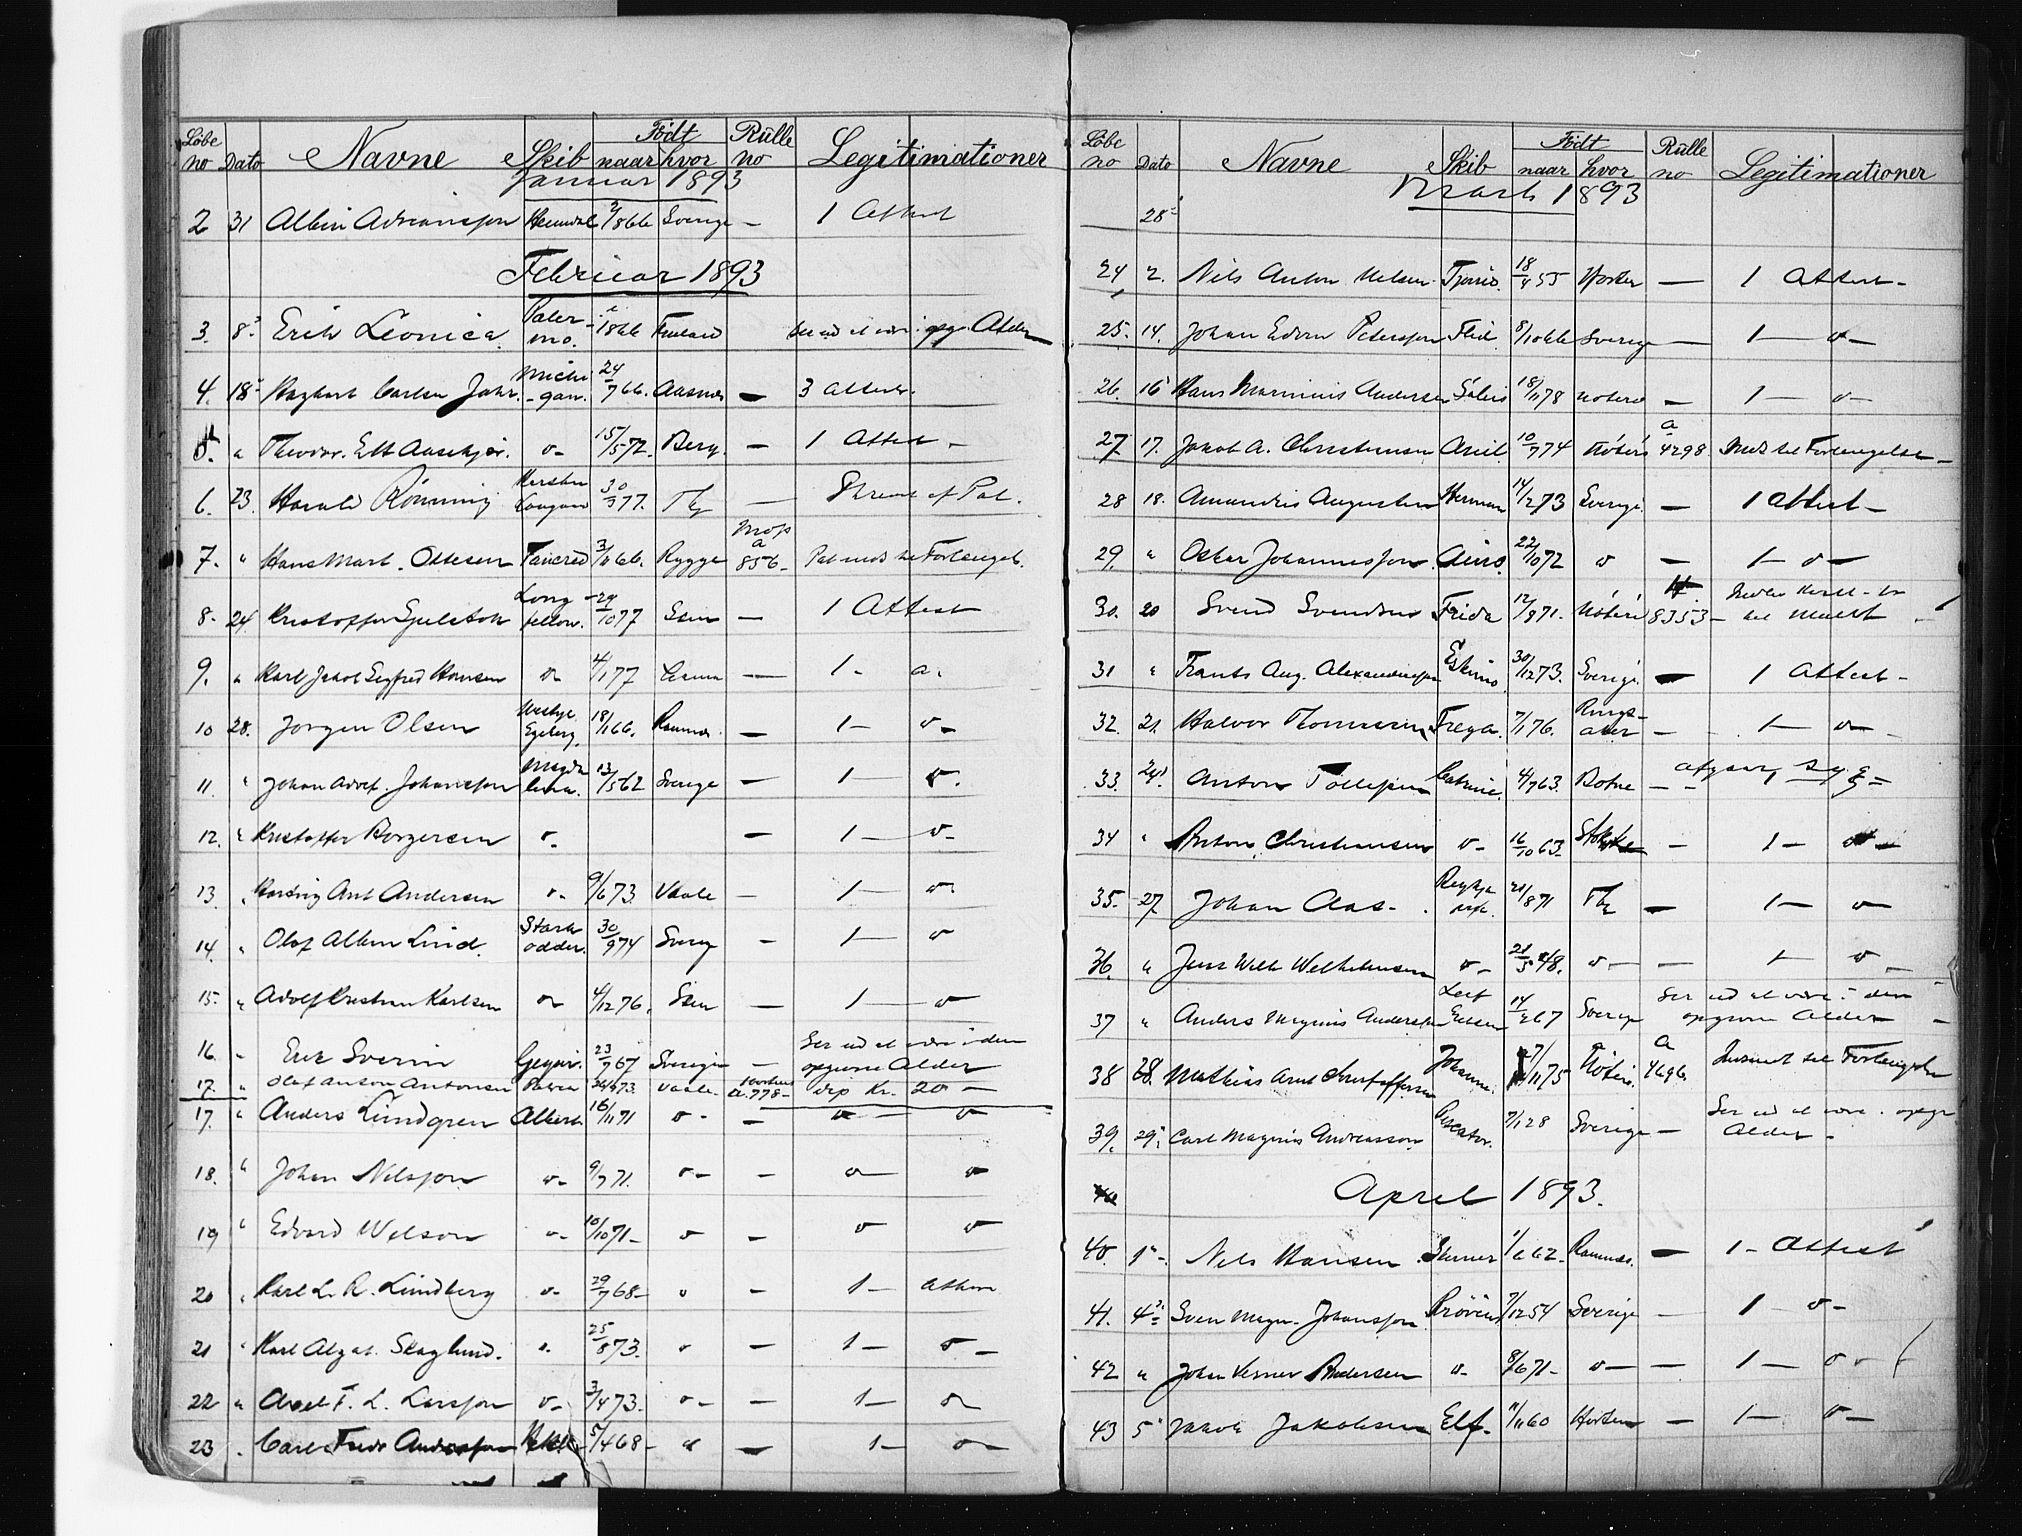 Løbe no Dato Navne Skib Født naar hvor Rülle no Legitimationer
Januar 1893
2 31 Albin Adriansson Heimdal 2/1866 Sverige — 1 Attest
Februar 1893
3. 8 Erik Leonica Palermo. 1866 Finland Ser ud at være i opgr. Alder
4. 18 Haghart Carlsen Jahr. Michigan. 24/766. Aasnes — 3 attester.
5. " Theodor. Elt Aasekjær. o- 15/572. Berg. — 1 Attest —
6. 23. Harald Rønning 30/377. Tbg — Skrevet af Pat.
7. " Hans Mart. Ottesen Tancred 3/1066. Rygge a 856 - Pat. med til Forlænget.
8. 24. Kristoffer Gjulstok Longfellow. 29/1077 Sem — 1 Attest
9. " Karl Jakob Sigfred Hansen o- 4/177 — 1 - o.
10 28. Jørgen Olsen Egeberg 18/166. Ramnes. — 1 — o-
11. " Johan Adolf. Johansson Magdalena. 13/562 Sverige — 1 — o.
12. " Kristoffer Borgersen o- — 1 — o-
13. " Ant Andersen o- 9/673. Vaale — 1 — o-
14. " Olaf Albin Lind. Starkodder. 30/974 Sverig — 1 — o
15. " Adolf Kristian Karlsen o- 4/1276. Sem — 1 — o
16. " Erik Sverin 23/767 Sverige — Ser ud at være i den opgivne Alder
17. " Olaf Anton Antonsen Patria 26/673. Vaale. a. 778 - dep Kr. 20 —
17. " Anders Lundgren Albert 16/1171 o - — o — o
18. " Johan Nilsson o- 9/771. o - — o — o
19 " Edvard Wilson o- 10/1071- o — o o
20 " Karl L. R. Lundberg o- 29/768- o — 1 — Attest
21 " Karl Alg. at. Skoglund. o. 25/873. o — 1 — o —
22 " Axel F. L. Larsson o- 3/473. o- — 1 — o
23 . Carl Fredr Andersson 5/468- o — 1- o —
Løbe no Dato Navne Skib Født naar hvor Rülle no Legitimationer
Marts 1893
28
24 2. Nils Anton Nelsen 18/455 Horten — 1 Attest -
25. 14. Johan Edvin Petersson Flid. 8/1066 Sverige — 1 — o —
26. 16 Hans Marinius Andersen Sølvis 18/1178 Nøterø — 1 — o —
27. 17. Jakob A. Christensen Axel 10/774 Nøterø a 4298. Med til Forlængelse —
28 18. Amandus Augustsen Herman 14/273 Sverige. — 1 Attest -
29. " Oskar Johannesson. Aino. 22/1072 o — 1 — o —
30. 20 Svend Svendsen Frida 12/871. Nøterø 8353 -
31 " Frants Aug. Alexandersson Eskimo. 30/1273. Sverige. — 1 Attest -
32. 21. Halvor Thomassen Freya. 7/176. Ringsaker — 1 — o —
33. 24 Anton Tollefsen Catrine. 4/763. Botne — - afgaar, syg —
34 " Anton Christiansen o- 16/1063. Stokke — 1 — o —
35. 27. Johan Aas - Reykjavik. 21/871 Tbg — 1 — o
36. " Jens Wilh Wilhelmsen o - 21/548. o — — 1 — o
37 " Anders Magnus Anderssen Leif Eriksen 14/267 Sverige Ser ud at være i den opgivne Alder —
38 28. Mathias Arnt Christoffersen Johanne. 7/1175 Nøterø. a 4696. Indsendt til Forlængelse
39. 29. Carl Magnus Andreasson. 7/128 Sverige — Ser ud at være i opgr Alder —
40
April 1893.
40. 1 Nils Hansen 1/662. Ramnes. — 1 - Attest
41. 4 Sven Magn. Johansson Prøven 7/1254 Sverige — 1 — o —
42 " Johan Verner Andersen o- 8/671- o — — 1 — o —
43 5 Jakob Jakobsen Elf. 11/1160 Horten — 1 — o —